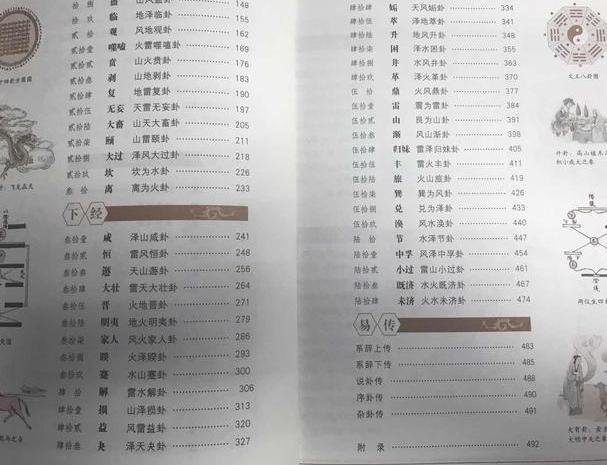 拾捌 蛊 山风蛊卦 148
拾玖 临 地泽临卦 155
贰拾 观 风地观卦 162
贰拾壹 噬嗑 火雷噬嗑卦 169
贰拾贰 贲 山火贲卦 176
贰拾叁 剥 山地剥卦 183
贰拾肆 复 地雷复卦 190
贰拾伍 无妄 天雷无妄卦 197
贰拾陆 大畜 山天大畜卦 205
贰拾柒 颐 山雷颐卦 211
贰拾捌 大过 泽风大过卦 218
贰拾玖 坎 坎为水卦 226
叁拾 离 离为火卦 233
下经
叁拾壹 咸 泽山咸卦 241
叁拾贰 恒 雷风恒卦 248
叁拾叁 遯 天山遯卦 256
叁拾肆 大壮 雷天大壮卦 264
叁拾伍 晋 火地晋卦 271
叁拾陆 明夷 地火明夷卦 279
叁拾柒 家人 风火家人卦 286
叁拾捌 睽 火泽睽卦 293
叁拾玖 蹇 水山蹇卦 300
肆拾 解 雷水解卦 306
肆拾壹 损 山泽损卦 313
肆拾贰 益 风雷益卦 320
肆拾叁 夬 泽天夬卦 327
肆拾肆 姤 天风姤卦 334
肆拾伍 萃 泽地萃卦 341
肆拾陆 升 地风升卦 348
肆拾柒 困 泽水困卦 355
肆拾捌 井 水风井卦 363
肆拾玖 革 泽火革卦 370
伍拾 鼎 火风鼎卦 377
伍拾壹 震 震为雷卦 384
伍拾贰 山 艮为山卦 391
伍拾叁 渐 风山渐卦 398
伍拾肆 归妹 雷泽归妹卦 405
伍拾伍 丰 雷火丰卦 411
伍拾陆 旅 火山旅卦 419
伍拾柒 巽 巽为风卦 426
伍拾捌 兑 兑为泽卦 433
伍拾玖 涣 风水涣卦 440
陆拾 节 水泽节卦 447
陆拾壹 中孚 风泽中孚卦 454
陆拾贰 小过 雷山小过卦 461
陆拾叁 既济 水火既济卦 467
陆拾肆 未济 火水未济卦 474
易传
系辞上传 483
系辞下传 485
说卦传 488
序卦传 490
杂卦传 491
附录 492
文王八卦图
升卦：高山植木
积小成大之象